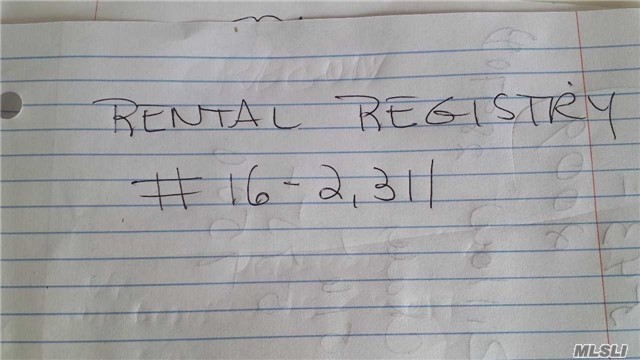 RENTAL REGISTRY
# 16-2,311
MLSLI